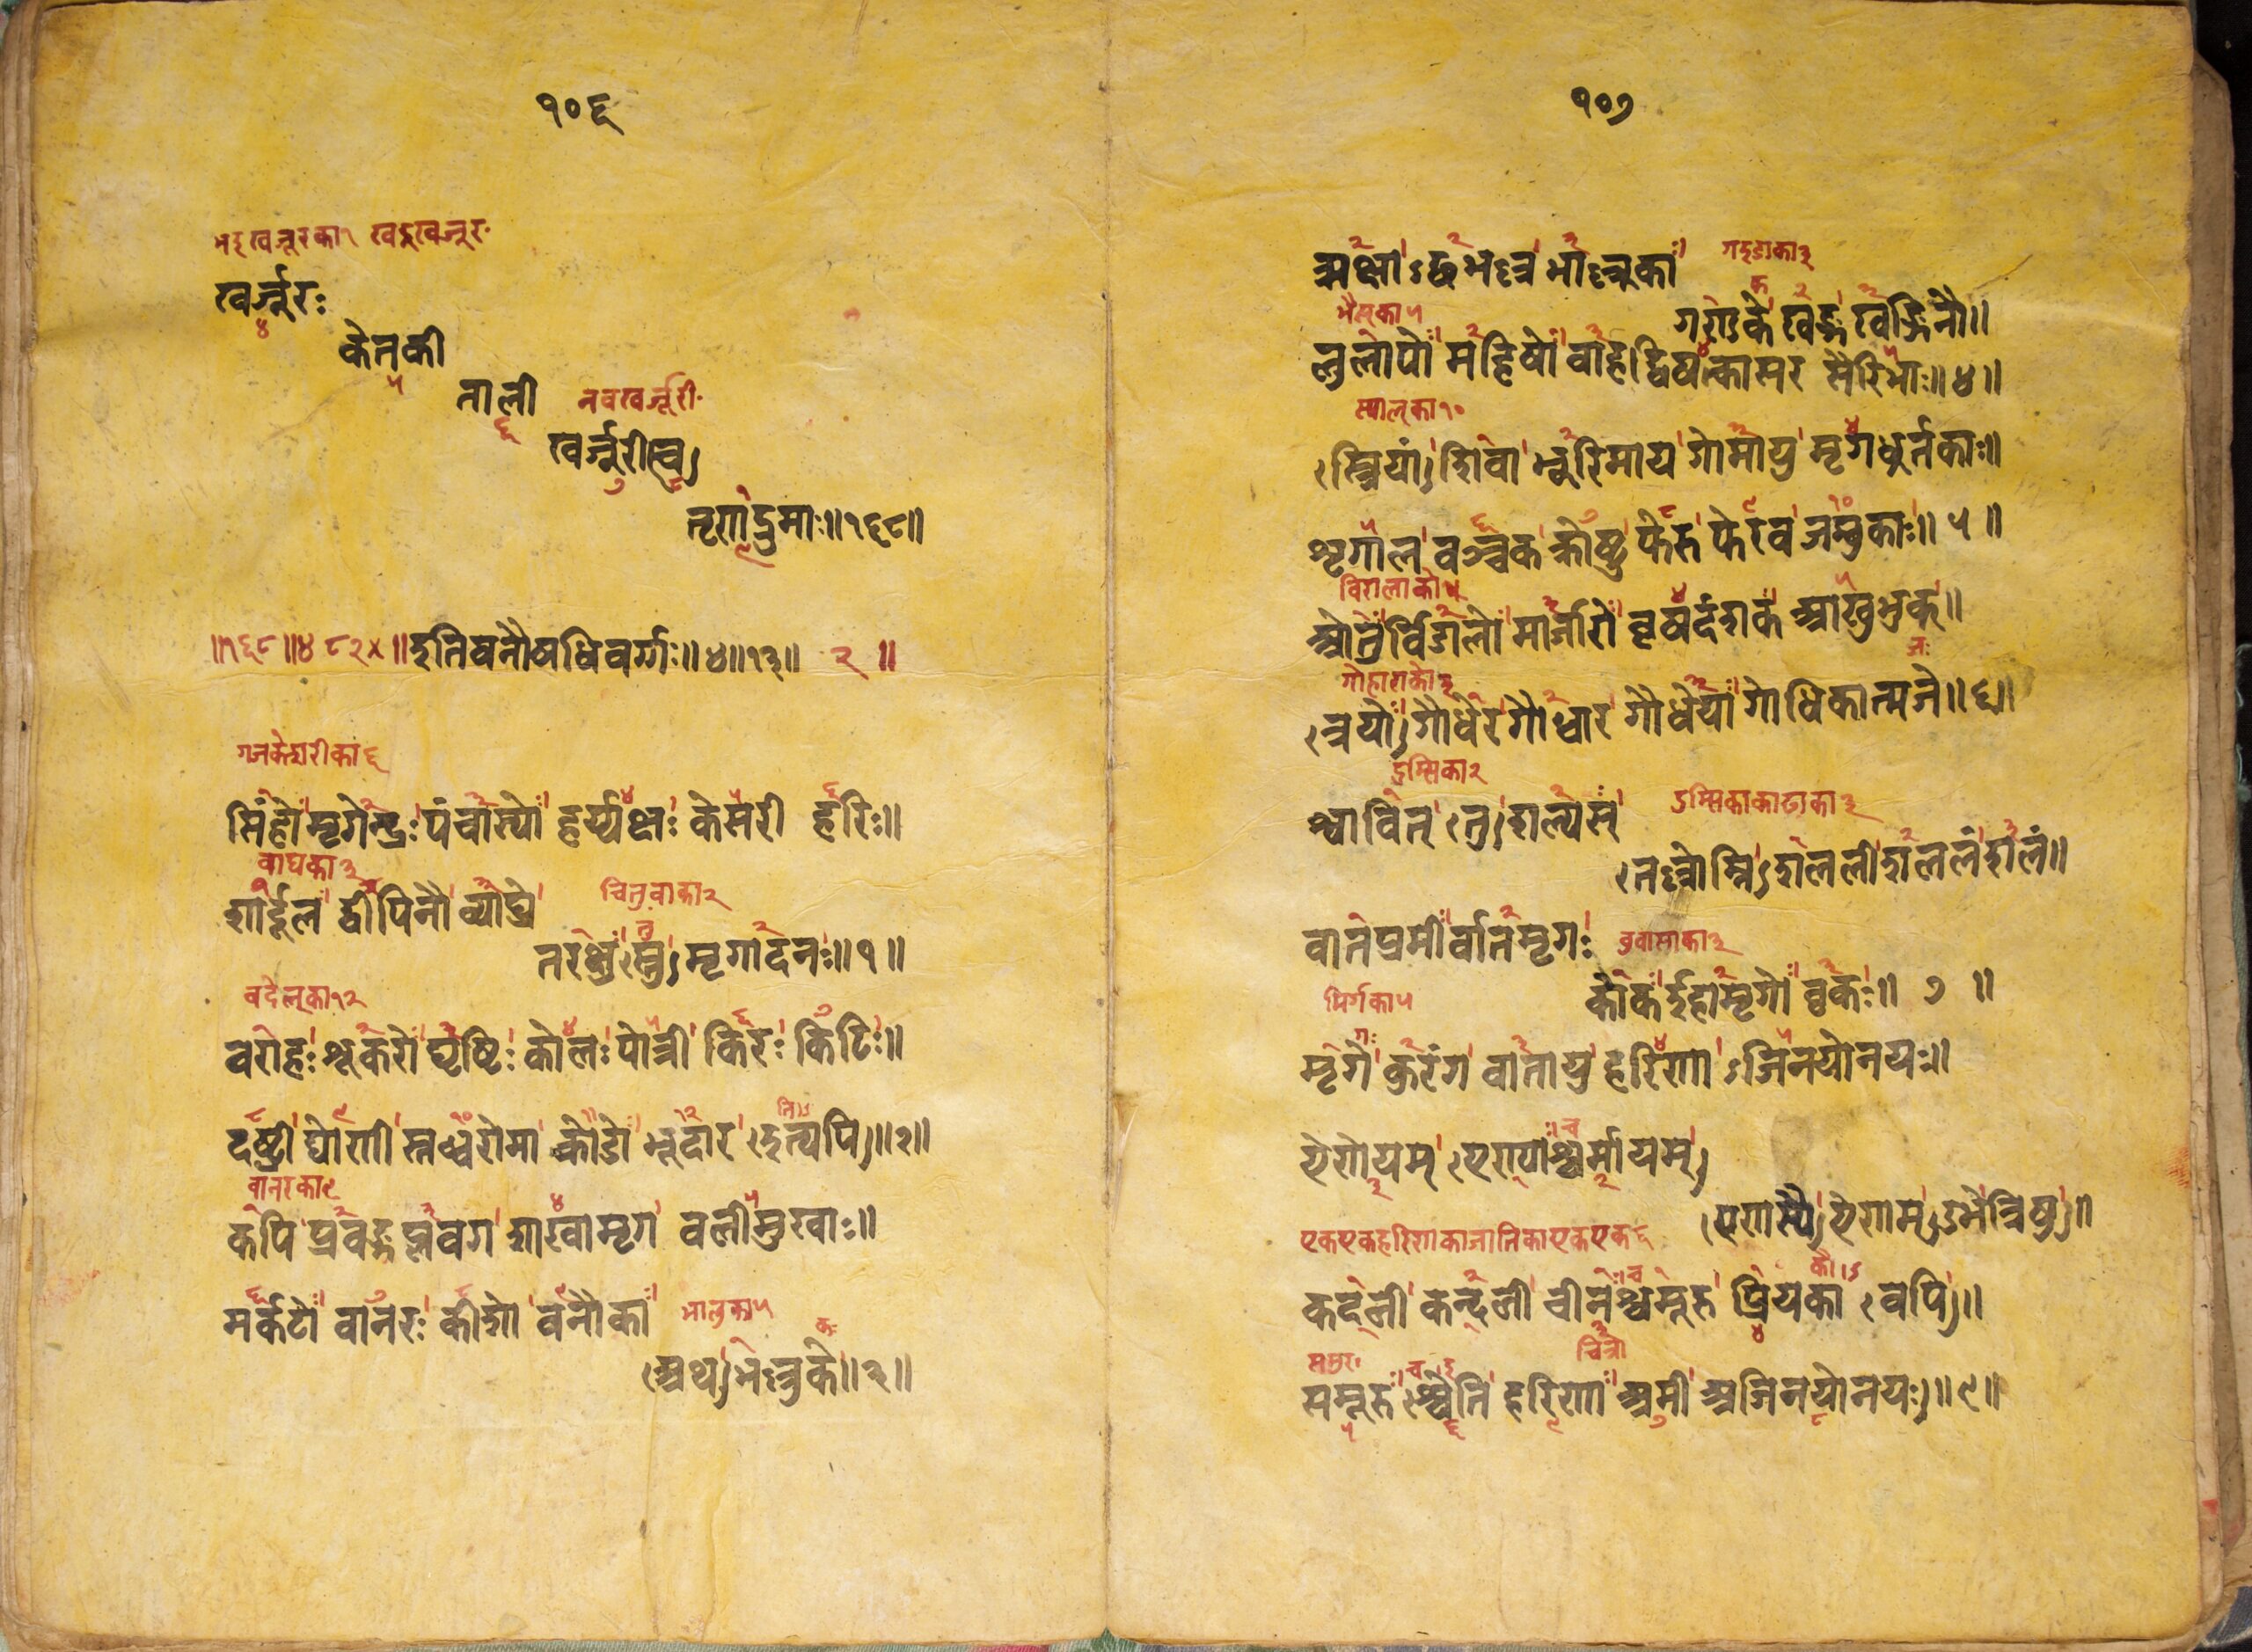 १०६
भद्रखर्जूरका१ खद्रुखर्जूर
खर्ज्जूरः
केतकी
ताली नवखर्ज्जूरी
खर्ज्जूरीत्व
तृणद्रुमाः॥१६८॥
॥१६८॥४८२४॥इतिवनौषधिवर्ग्गः॥४॥१३॥ २ ॥
गजकेशरीका६
सिंहो मृगेन्द्रः पंचास्यो हर्य्यक्षः केसरी हरिः॥
बाघका३
शार्दूल द्वीपिनौ व्याघ्रे चितुवाका२
तरक्षुस्तु मृगादनः॥१॥
बदेल्का१२
वराहः शूकरो घृष्टिः कोलः पोत्री किरः किटिः॥
दंष्ट्री घोणी स्तब्धरोमा क्रोडो भूदार इत्यपि॥२॥
वानरका९
कपि प्लवङ्ग प्लवग शाखामृग वलीमुखाः॥
मर्कटो वानरः कीशो वनौका भालुका५
अथ भल्लुके॥३॥
१०७
ऋक्षाऽच्छभल्ल भाल्लुका गइडाका३
भैंसका५ गण्डके खड्ग खड्गिनौ॥
लुलापो महिषो वाहद्विषत्कासर सैरिभाः॥४॥
स्यालका१०
स्त्रियां शिवा भूरिमाय गोमायु मृगधूर्तकाः॥
शृगाल वञ्चक क्रोष्टु फेरु फेरव जम्बुकाः॥५॥
विरालाको५
ओतुर्विडालो मार्जारो वृषदंशक आखुभुक्॥
गोहाराको३
त्रयो गौधेर गौधार गौधेया गोधिकात्मजे॥६॥
दुम्सिका२
श्वावित् तु शल्यस् दुम्सिकाकाडाका३
तल्लोम्नि शलली शललं शलं॥
वातप्रमीर्वातमृगः बुवासाका३
मिर्गका५ कोकईहामृगो वृकः॥ ७ ॥
मृगे कुरंग वातायु हरिणाऽजिनयोनयः॥
ऐणेयम् एण्याश्चर्माद्यम्
एणस्यै ऐणम् उभे त्रिषु॥
एकएकहरिणकाजातिकाएकएक६
कदली कन्दली चीनश्चमूरु प्रियका वपि॥
समूरु श्चेति हरिणा अमी अजिनयोनयः॥९॥